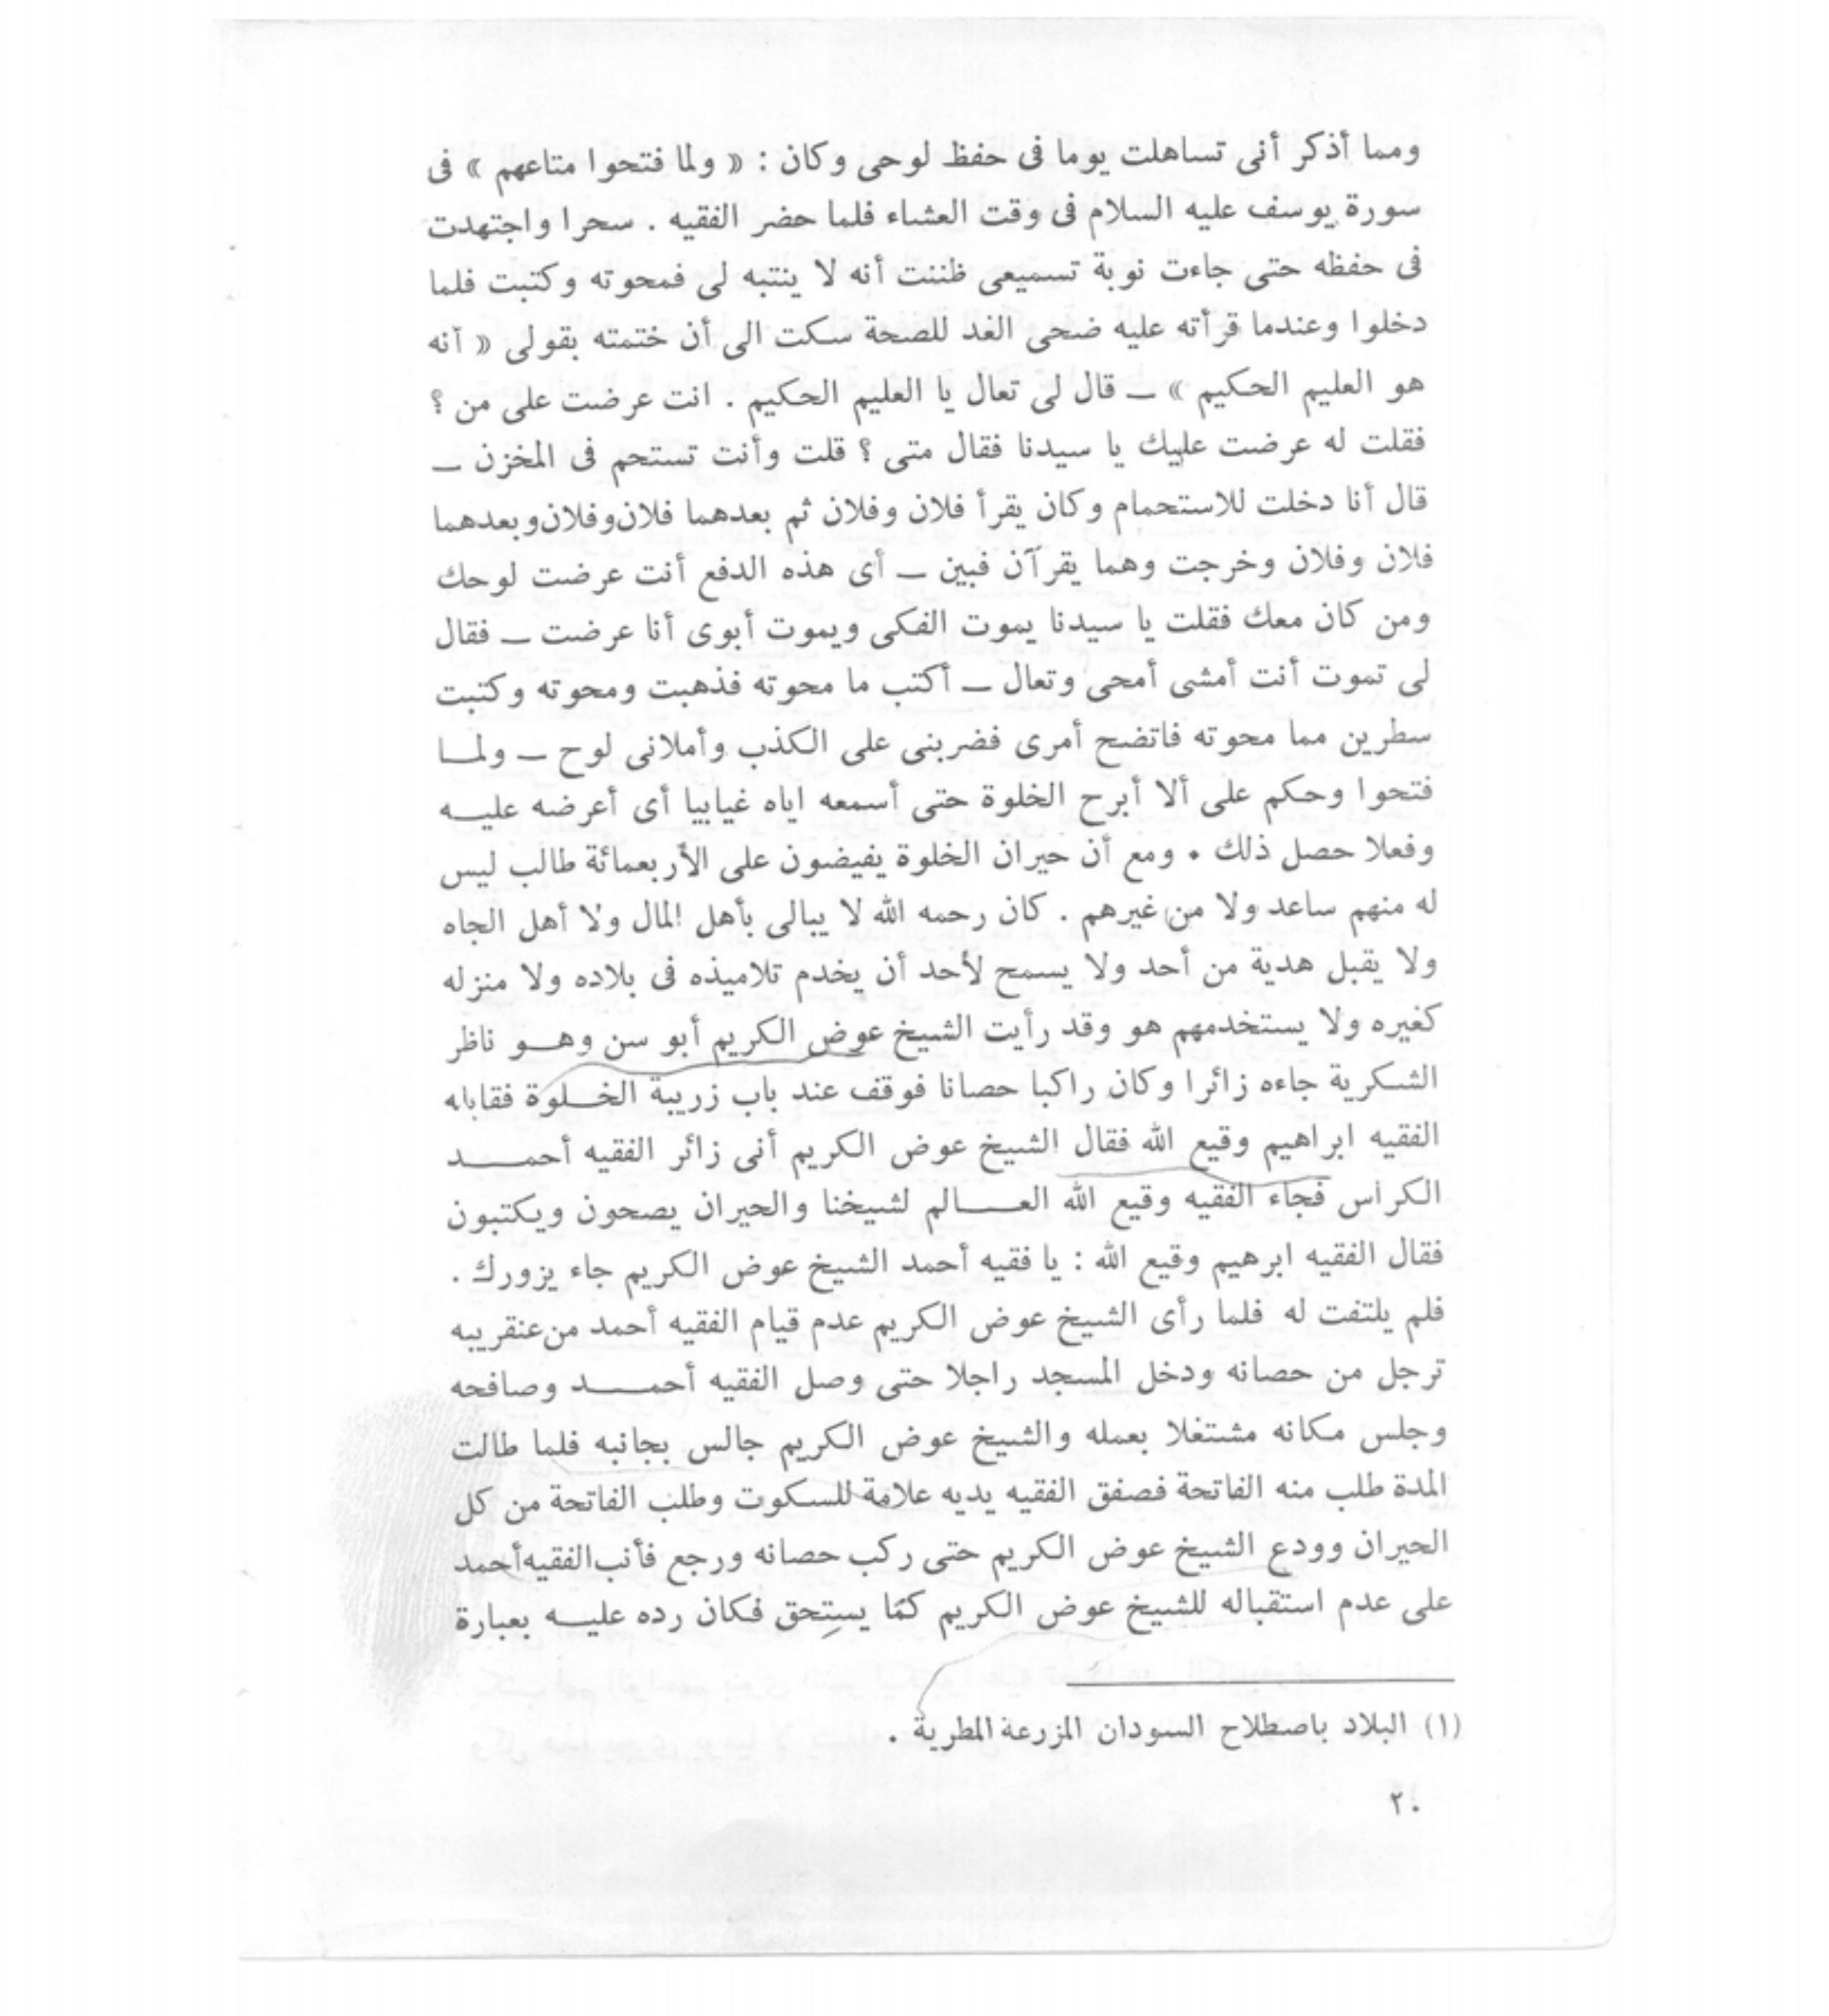 ومما أذكر أنى تساهلت يوما فى حفظ لوحى وكان : « ولما فتحوا متاعهم » فى
سورة يوسف عليه السلام فى وقت العشاء فلما حضر الفقيه . سحرا واجتهدت
فى حفظه حتى جاءت نوبة تسميعى ظننت أنه لا ينتبه لى فمحوته وكتبت فلما
دخلوا وعندما قرأته عليه ضحى الغد للصحة سكت الى أن ختمته بقولى « آنه
هو العليم الحكيم » ــ قال لى تعال يا العليم الحكيم . انت عرضت على من ؟
فقلت له عرضت عليك يا سيدنا فقال متى ؟ قلت وأنت تستحم فى المخزن ــ
قال أنا دخلت للاستحمام وكان يقرأ فلان وفلان ثم بعدهما فلان وفلان وبعدهما
فلان وفلان وخرجت وهما يقرآن فبين ــ أى هذه الدفع أنت عرضت لوحك
ومن كان معك فقلت يا سيدنا يموت الفكى ويموت أبوى أنا عرضت ــ فقال
لى تموت أنت أمشى أمحى وتعال ــ أكتب ما محوته فذهبت ومحوته وكتبت
سطرين مما محوته فاتضح أمرى فضربنى على الكذب وأملانى لوح ــ ولمــا
فتحوا وحكم على ألا أبرح الخلوة حتى أسمعه اياه غيابيا أى أعرضه عليــه
وفعلا حصل ذلك • ومع أن حيران الخلوة يفيضون على الأربعمائة طالب ليس
له منهم ساعد ولا من غيرهم . كان رحمه الله لا يبالى بأهل المال ولا أهل الجاه
ولا يقبل هدية من أحد ولا يسمح لأحد أن يخدم تلاميذه فى بلاده ولا منزله
كغيره ولا يستخدمهم هو وقد رأيت الشيخ عوض الكريم أبو سن وهــو ناظر
الشكرية جاءه زائرا وكان راكبا حصانا فوقف عند باب زريبة الخــلوة فقابله
الفقيه ابراهيم وقيع الله فقال الشيخ عوض الكريم أنى زائر الفقيه أحمــــد
الكراس فجاء الفقيه وقيع الله العــــالم لشيخنا والحيران يصحون ويكتبون
فقال الفقيه ابرهيم وقيع الله : يا فقيه أحمد الشيخ عوض الكريم جاء يزورك .
فلم يلتفت له فلما رأى الشيخ عوض الكريم عدم قيام الفقيه أحمد من عنقريبه
ترجل من حصانه ودخل المسجد راجلا حتى وصل الفقيه أحمــــد وصافحه
وجلس مكانه مشتغلا بعمله والشيخ عوض الكريم جالس بجانبه فلما طالت
المدة طلب منه الفاتحة فصفق الفقيه يديه علامة للسكوت وطلب الفاتحة من كل
الحيران وودع الشيخ عوض الكريم حتى ركب حصانه ورجع فأنب الفقيه أحمد
على عدم استقباله للشيخ عوض الكريم كما يستحق فكان رده عليــه بعبارة
(١) البلاد باصطلاح السودان المزرعة المطرية .
٢٠